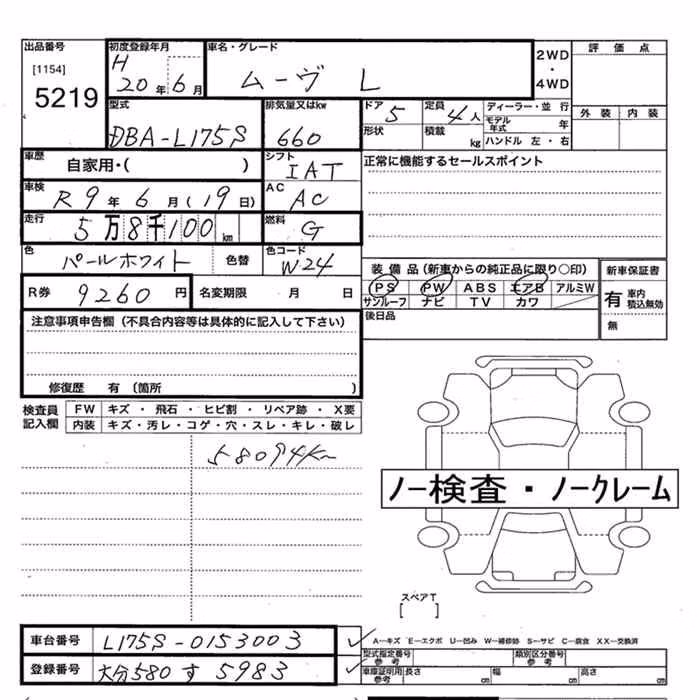 出品番号
[1154]
5219
初度登録年月
H
20年6月
車名・グレード
ムーヴ L
2WD
・
4WD
評価点
外装 内装
型式
DBA-L175S
排気量又はkw
660
ドア 5
定員 4人
形状
積載 kg
ディーラー・並行
モデル年式 年
ハンドル 左・右
車歴
自家用・( )
シフト
IAT
正常に機能するセールスポイント
車検
R9年6月(19日)
AC
AC
走行
5万8千100km
燃料
G
色
パールホワイト
色替
色コード
W24
装備品(新車からの純正品に限り〇印)
PS PW ABS エアB アルミW
サンルーフ ナビ TV カワ
新車保証書
有 車内積込無効
無
R券 9260円
名変期限 月 日
後日品
注意事項申告欄(不具合内容等は具体的に記入して下さい)
修復歴 有 (箇所 )
検査員記入欄
FW キズ・飛石・ヒビ割・リペア跡・X要
内装 キズ・汚レ・コゲ・穴・スレ・キレ・破レ
58094km
ノー検査・ノークレーム
スペアT
[ ]
車台番号
L175S-0153003
A―キズ E―エクボ U―凹み W―補修跡 S―サビ C―腐食 XX―交換済
型式指定番号
参考
類別区分番号
参考
登録番号
大分580す5983
車庫証明用
参考
長さ cm
幅 cm
高さ cm